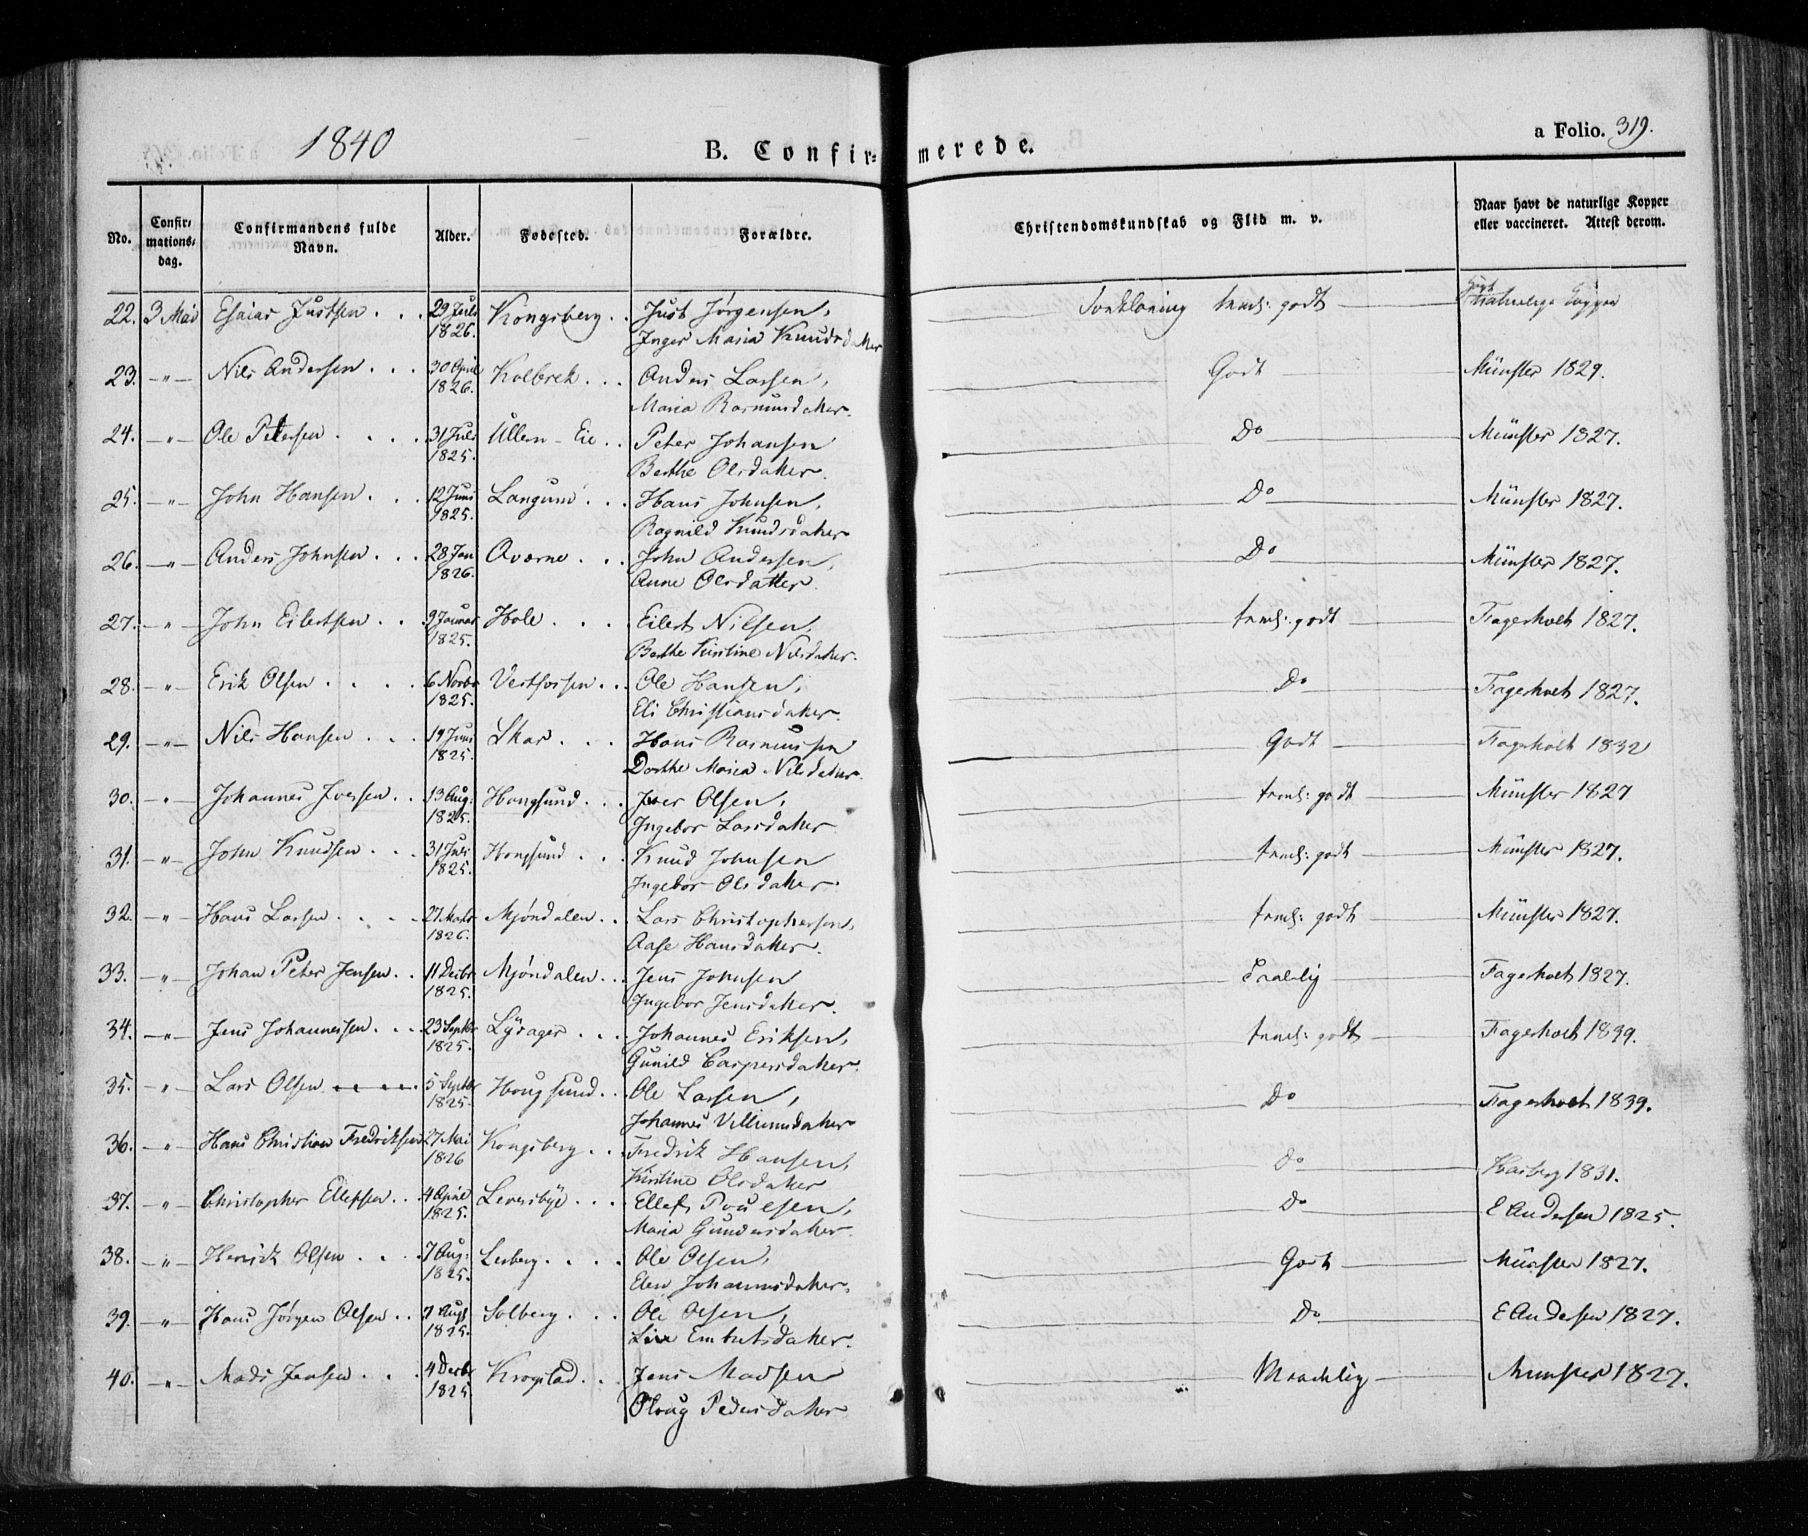 1840
B. Confirmerede.
a Folio. 319.
No. Confirmations-dag. Confirmandens fulde Navn. Alder. Fødested. Forældre. Christendomskundskab og Flid m. v. Naar havt de naturlige Kopper eller vaccineret. Attest derom.
22. 3 Mai Esaias Justsen . . . 29 Juli 1826. Kongsberg . . Just Jørgensen, taml: godt naturlige Kopper
Inger Maria Knudsdatter
23. -"- Nils Andersen . . . 30 April 1826. Kolbrek . . . Anders Larsen, Godt Münster 1829.
Maria Rasmusdatter.
24. -"- Ole Petersen . . . . 31 Juli 1825. Ullern-Eie . . Peter Johansen Do Münster 1827.
Berthe Olsdatter.
25. -"- John Hansen . . . 12 Juni 1825. Langum . . . Hans Johnsen, Do Münster 1827.
Ragnild Knudsdatter
26. -"- Anders Johnsen . . . 28 Jan 1826. Qværne . . . John Andersen, Do Münster 1827.
Anne Olsdatter.
27. -"- John Eilertsen . . 9 Januar 1825. Hole . . . . Eilert Nilsen, taml: godt Fagerholt 1827.
Berthe Kirstine Nilsdatter.
28. -"- Erik Olsen . . . . 6 Novbr 1825. Vestfossen . . . Ole Hansen, Do Fagerholt 1827.
Eli Christiansdatter.
29. -"- Nils Hansen . . . 19 Juni 1825. Skar . . . Hans Rasmussen Godt Fagerholt 1832
Dorthe Maria Nilsdatter.
30. -"- Johannes Iversen . . 13 Aug: 1825. Hougsund . . . Iver Olsen, taml: godt Münster 1827
Ingebor Larsdatter
31. -"- John Knudsen . . . 31 Juli 1825. Hougsund . . . Knud Johnsen taml: godt Münster 1827.
Ingebor Olsdatter.
32. -"- Hans Larsen . . . . 27 Marts 1826. Mjøndalen . . Lars Christophersen, taml: godt Münster 1827.
Aase Hansdatter.
33. -"- Johan Peter Jensen . . 11 Decbr 1825. Mjøndalen . . . Jens Johnsen Fagerholt 1827.
Ingebor Jensdatter.
34. -"- Jens Johannessen . . . . 23 Septbr 1825. Lysager . . . Johannes Eriksen, taml: godt Fagerholt 1839.
Gunild Caspersdatter.
35. -"- Lars Olsen 5 Septbr 1825. Hougsund . . Ole Larsen, Do Fagerholt 1839.
Johannes Villumsdatter
36. -"- Hans Christian Fredriksen 27 Mai 1826 Kongsberg . . . Fredrik Hansen, Do 1831.
Kirstine Olsdatter
37. -"- Christopher Ellefsen . . 4 April 1825. Leversbye . . . Ellef Poulsen, Do E Andersen 1825.
Maria Gundersdatter.
38. -"- Henrick Olsen . . . . 7 Aug: 1825. Lerberg . . . . Ole Olsen, Godt Münster 1827.
Elen Johannesdatter.
39. -"- Hans Jørgen Olsen . . 7 Augs 1825. Solberg . . . Ole Olsen, Do E Andersen 1827.
Live Embretsdatter.
40. -"- Mads Jensen . . . 4 Decbr 1825 Krogstad . . . Jens Madsen Maadelig Munster 1827.
Oloug Pedersdatter